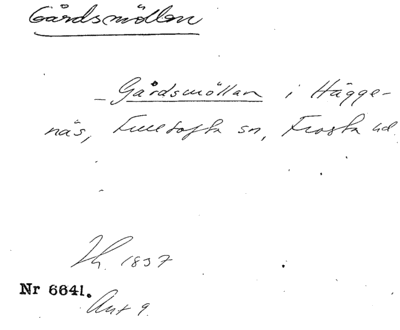 Gårdsmöllan
– Gårdsmöllan i Hägge-
näs, Fulltofta sn, Frosta hd
Jh. 1837
Nr 6641.
Ant 9.